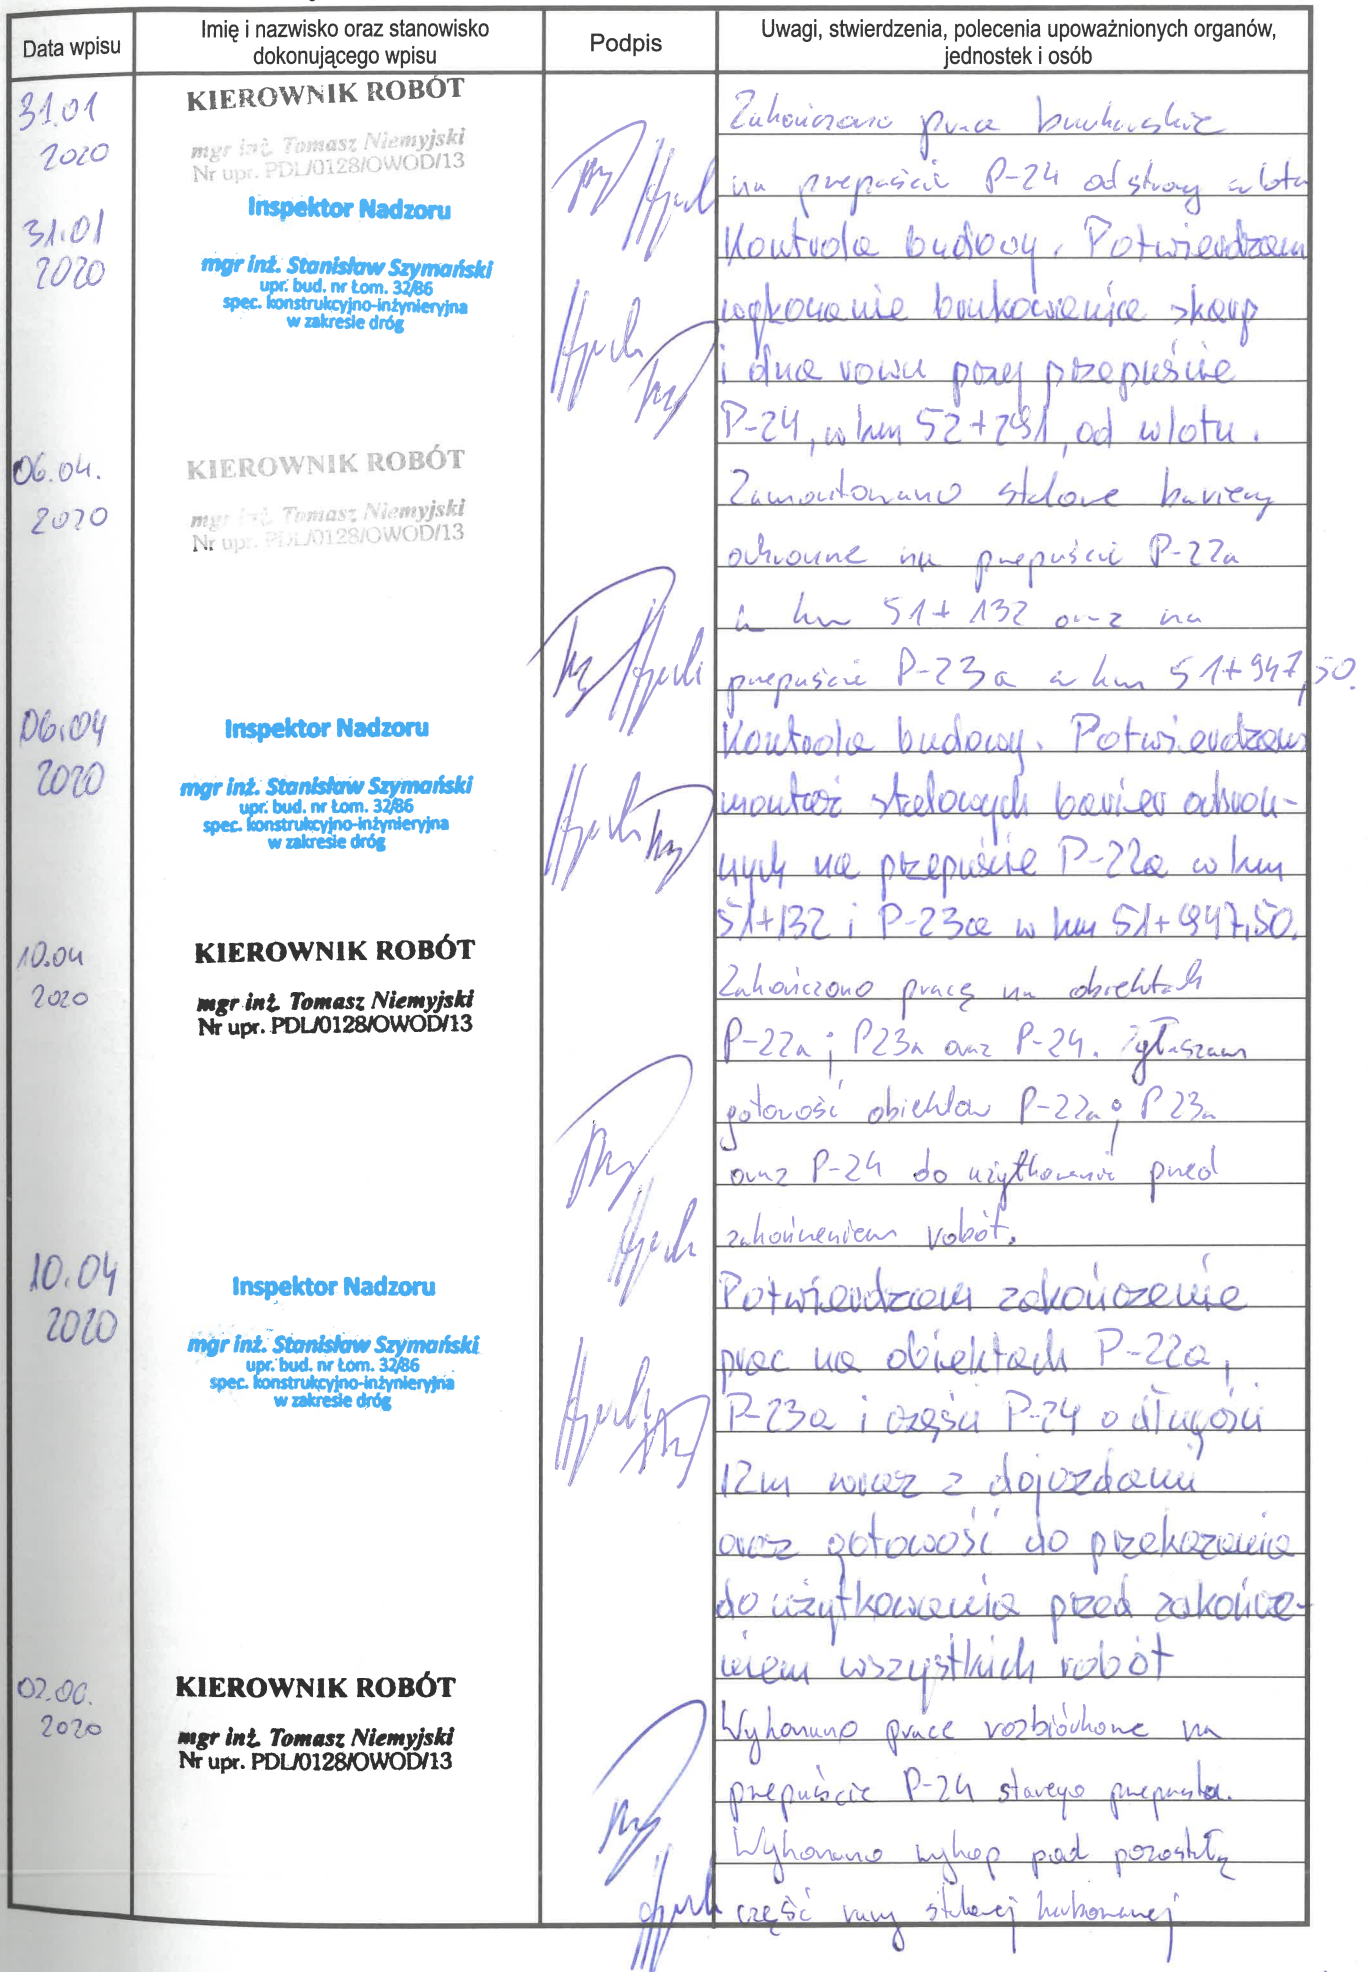 Data wpisu
Imię i nazwisko oraz stanowisko
dokonującego wpisu
Podpis
Uwagi, stwierdzenia, polecenia upoważnionych organów,
jednostek i osób
31.01
2020
KIEROWNIK ROBÓT
mgr inż. Tomasz Niemyjski
Nr upr. PDL/0128/OWOD/13
Zakończono prace brukarskie
na przepuście P-24 od strony wlotu
31.01
2020
Inspektor Nadzoru
mgr inż. Stanisław Szymański
upr. bud. nr Łom. 32/86
spec. konstrukcyjno-inżynieryjna
w zakresie dróg
Kontrola budowy. Potwierdzam
wykonanie brukowania skarp
i dna rowu przy przepuście
P-24, w km 52+291, od wlotu.
06.04.
2020
KIEROWNIK ROBÓT
mgr inż. Tomasz Niemyjski
Nr upr. PDL/0128/OWOD/13
Zamontowano stalowe bariery
ochronne na przepuście P-22a
w km 51+132 oraz na
przepuście P-23a w km 51+947,50.
06.04
2020
Inspektor Nadzoru
mgr inż. Stanisław Szymański
upr. bud. nr Łom. 32/86
spec. konstrukcyjno-inżynieryjna
w zakresie dróg
Kontrola budowy. Potwierdzam
montaż stalowych barier ochron-
nych na przepuście P-22a w km
51+132 i P-23a w km 51+947,50.
10.04
2020
KIEROWNIK ROBÓT
mgr inż. Tomasz Niemyjski
Nr upr. PDL/0128/OWOD/13
Zakończono pracę na obiektach
P-22a; P23a oraz P-24. Zgłaszam
gotowość obiektów P-22a; P23a
oraz P-24 do użytkowania przed
zakończeniem robót.
10.04
2020
Inspektor Nadzoru
mgr inż. Stanisław Szymański
upr. bud. nr Łom. 32/86
spec. konstrukcyjno-inżynieryjna
w zakresie dróg
Potwierdzam zakończenie
prac na obiektach P-22a,
P-23a i części P-24 o długości
12m wraz z dojazdami
oraz gotowość do przekazania
do użytkowania przed zakończe-
niem wszystkich robót
02.06.
2020
KIEROWNIK ROBÓT
mgr inż. Tomasz Niemyjski
Nr upr. PDL/0128/OWOD/13
Wykonano prace rozbiórkowe na
przepuście P-24 starego przepustu.
Wykonano wykop pod pozostałą
część rury stalowej karbowanej